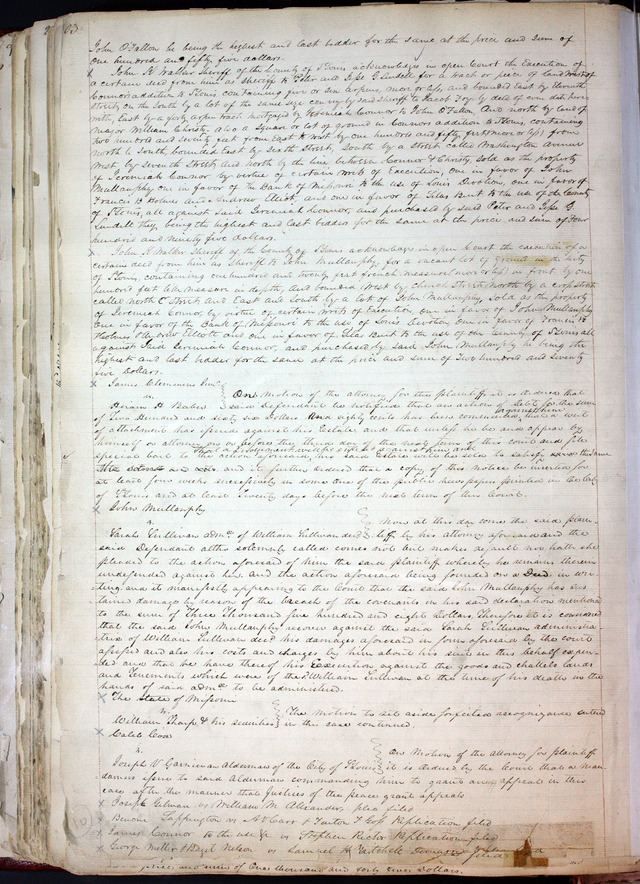 John O'Fallon he being the highest and last bidder for the same at the price and sum of
one hundred and fifty five dollars.
John K Walker Sheriff of the County of St Louis acknowledges in open Court the Execution of
a certain deed from him as Sheriff to Peter and Jesse G Lindell for a tract or piece of land West of
Connor addition to St Louis containing five or six arpens, more or less, and bounded East by Eleventh
Street, on the South by a lot of the same size conveyed by said Sheriff to Jacob by deed of even date here
with, East by a forty arpen tract mortgaged by Jeremiah Connor to John O'Fallon and North by land of
Major William Christy. also a Square or lot of ground in Connors addition to St Louis, containing
two hundred and seventy feet from East to West by one hundred and fifty feet more or less, from
North to South, bounded East by Sixth Street, South by a street called Washington avenue
West by Seventh Street and North by the line between Connor & Christy, sold as the property
of Jeremiah Connor by virtue of certain writs of Execution, one in favor of John
Mullanphy one in favor of the Bank of Missouri to the use of Louis Devotion, one in favor of
Francis B Holmes and Andrew Elliott, and one in favor of Silas Bent to the use of the County
of St Louis, all against said Jeremiah Connor, and purchased by said Peter and Jesse G.
Lindell they being the highest and last bidder for the same at the price and sum of Four
hundred and ninety five dollars.
John K Walker Sheriff of the County of St Louis acknowledges in open Court the execution of a
certain deed from him as Sheriff to John Mullanphy, for a vacant lot of ground in the City
of St Louis, containing one hundred and twenty feet french measure more or less, in front by one
hundred feet like measure in depth, and bounded West by church Street North by a cross street
called North C Street and East and South by a lot of John Mullanphy, Sold as the property
of Jeremiah Connor, by virtue of certain writs of Execution one in favor of John Mullanphy
One in favor of the Bank of Missouri to the use of Louis Devotion, one in favor of Francis B
Holmes & Andrew Elliott and one in favor of Silas Bent to the use of the County of St Louis, all
against said Jeremiah Connor, and purchased by said John Mullanphy he being the
highest and last bidder for the same at the price and sum of Two hundred and seventy
five dollars.
James Clemens Junr
vs.
On Motion of the attorney for the plaintiff it is ordered that
Hiram H Baber
said Defendant be notified that an action of Debt for the sum
of Two hundred and sixty two dollars and eighty cents has been commenced against him that a writ
of attachment has issued against his Estate and that unless he be and appear by
himself or attorney on or before the third day of the next term of this court and file
special bail to the action aforesaid, that a judgement will be entered against him and his said Estate will be sold to satisfy the same
and it is further ordered that a copy of this notice be inserted for
at least four weeks successively in some one of the public newspapers printed in the City
of St Louis and at least twenty days before the next term of this Court.
John Mullanphy
v.
Now at this day comes the said plain-
Sarah Sullivan admx of William Sullivan decd
tiff by his attorney aforesaid and the
said Defendant altho solemnly called comes not but makes default nor hath she
pleaded to the action aforesaid of him the said plaintiff whereby he remains therein
undefended against her and the action aforesaid being founded on a Deed in wri-
ting, and it manifestly appearing to the Court that the said John Mullanphy has sus
tained damage by reason of the breach of the covenants in his said declaration mentioned
to the sum of Three Thousand five hundred and eight dollars. Therefore it is considered
that the said John Mullanphy recover against the said Sarah Sullivan administra
trix of William Sullivan decd his damages aforesaid in form aforesaid by the court
assessed and also his costs and charges by him about his suit in this behalf expen-
ded and that he have thereof his Execution against the goods and chattels lands
and tenements which were of the William Sullivan at the time of his death in the
hands of said admx to be administered.
The State of Missouri
v.
The Motion to set aside forfeited recognizance entered
William Sharp & his securities
in this case continued.
Caleb Cox
v.
On Motion of the attorney for plaintiff
Joseph V Garnier an Alderman of the City of St Louis
it is ordered by the Court that a Man
damus issue to said Alderman commanding him to grant an appeal in this
case after the manner that Justices of the peace grant appeals
Joseph Gilman vs William M. Alexander, plea filed
Benoni Sappington vs A V Carr & Exr Replication filed
James Connor to the use &c vs Stephen Rector Replication filed
George Miller & Bazil Nelson vs Samuel H filed
price and sum of One thousand and forty five Dollars.